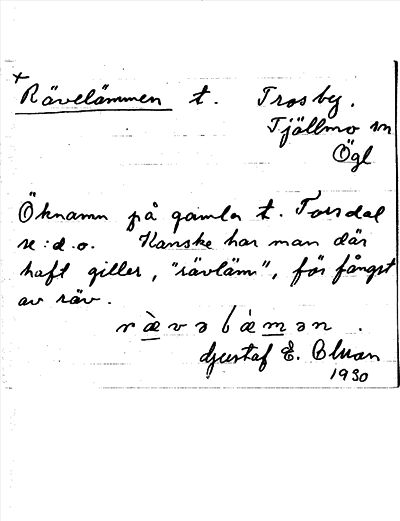 x
Rävelämmen t. Trosby.
Tjällmo sn
Ögl
Öknamn på gamla t. Torsdal
se: d.o. Kanske har man där
haft giller, "rävläm", för fångst
av räv.
Gustaf E.
1930